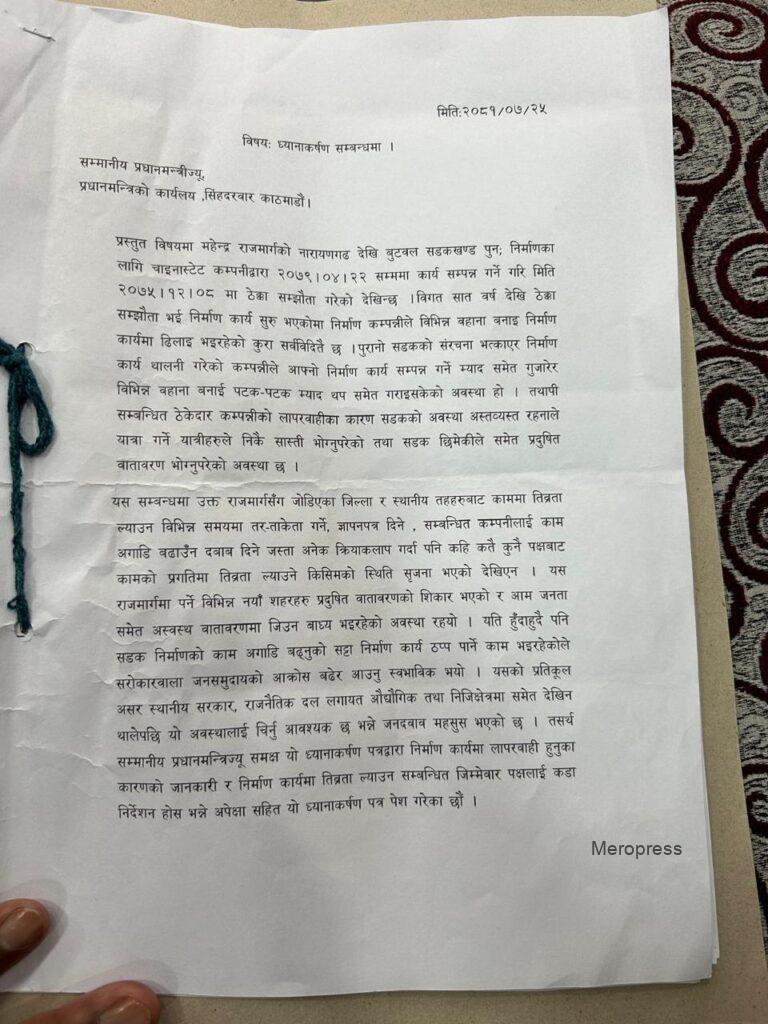 मिति:२०८१/०७/२५
विषय: ध्यानाकर्षण सम्बन्धमा ।
सम्मानीय प्रधानमन्त्रीज्यू,
प्रधानमन्त्रिको कार्यलय ,सिंहदरवार काठमाडौं।
प्रस्तुत विषयमा महेन्द्र राजमार्गको नारायणगढ देखि बुटवल सडकखण्ड पुन; निर्माणका
लागि चाइनास्टेट कम्पनीद्वारा २०७९।०४।२२ सममा कार्य सम्पन्न गर्ने गरि मिति
२०७५।१२।०८ मा ठेक्का सम्झौता गरेको देखिन्छ ।विगत सात वर्ष देखि ठेक्का
सम्झौता भई निर्माण कार्य सुरु भएकोमा निर्माण कम्पनीले विभिन्न वहाना बनाइ निर्माण
कार्यमा ढिलाइ भइरहेको कुरा सर्वविदितै छ ।पुरानो सडकको संरचना भत्काएर निर्माण
कार्य थालनी गरेको कम्पनीले आफ्नो निर्माण कार्य सम्पन्न गर्ने म्याद समेत गुजारेर
विभिन्न वहाना बनाई पटक-पटक म्याद थप समेत गराइसकेको अवस्था हो । तथापी
सम्बन्धित ठेकेदार कम्पनीको लापरवाहीका कारण सडकको अवस्था अस्तव्यस्त रहनाले
यात्रा गर्ने यात्रीहरुले निकै सास्ती भोग्नुपरेको तथा सडक छिमेकीले समेत प्रदुषित
वातावरण भोग्नुपरेको अवस्था छ ।
यस सम्बन्धमा उक्त राजमार्गसँग जोडिएका जिल्ला र स्थानीय तहहरुबाट काममा तिव्रता
ल्याउन विभिन्न समयमा तर-ताकेता गर्ने, ज्ञापनपत्र दिने , सम्बन्धित कम्पनीलाई काम
अगाडि बढाउँन दवाब दिने जस्ता अनेक क्रियाकलाप गर्दा पनि कहि कतै कुनै पक्षबाट
कामको प्रगतिमा तिव्रता ल्याउने किसिमको स्थिति सृजना भएको देखिएन । यस
राजमार्गमा पर्ने विभिन्न नयाँ शहरहरु प्रदुषित वातावरणको शिकार भएको र आम जनता
समेत अस्वस्थ वातावरणमा जिउन बाध्य भइरहेको अवस्था रहयो । यति हुँदाहुदै पनि
सडक निर्माणको काम अगाडि बढ्नुको सट्टा निर्माण कार्य ठप्प पार्ने काम भइरहेकोले
सरोकारवाला जनसमुदायको आक्रोस बढेर आउनु स्वभाविक भयो । यसको प्रतिकूल
असर स्थानीय सरकार, राजनैतिक दल लगायत औद्यौगिक तथा निजिक्षेत्रमा समेत देखिन
थालेपछि यो अवस्थालाई चिर्नु आवश्यक छ भन्ने जनदवाव महसुस भएको छ । तसर्थ
सम्मानीय प्रधानमन्त्रिज्यू समक्ष यो ध्यानाकर्षण पत्रद्वारा निर्माण कार्यमा लापरवाही हुनुका
कारणको जानकारी र निर्माण कार्यमा तिव्रता ल्याउन सम्बन्धित जिम्मेवार पक्षलाई कडा
निर्देशन होस भन्ने अपेक्षा सहित यो ध्यानाकर्षण पत्र पेश गरेका छौं ।
Meropress